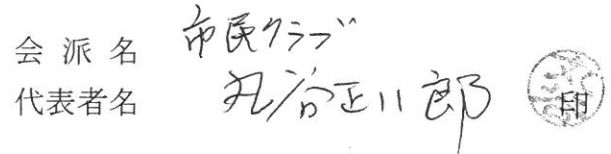 会派名 市民クラブ
代表者名 丸谷正八郎 印